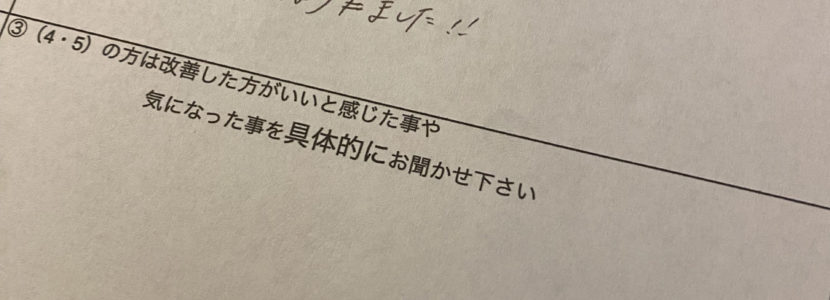 ました!!
③（4・5）の方は改善した方がいいと感じた事や
気になった事を具体的にお聞かせ下さい